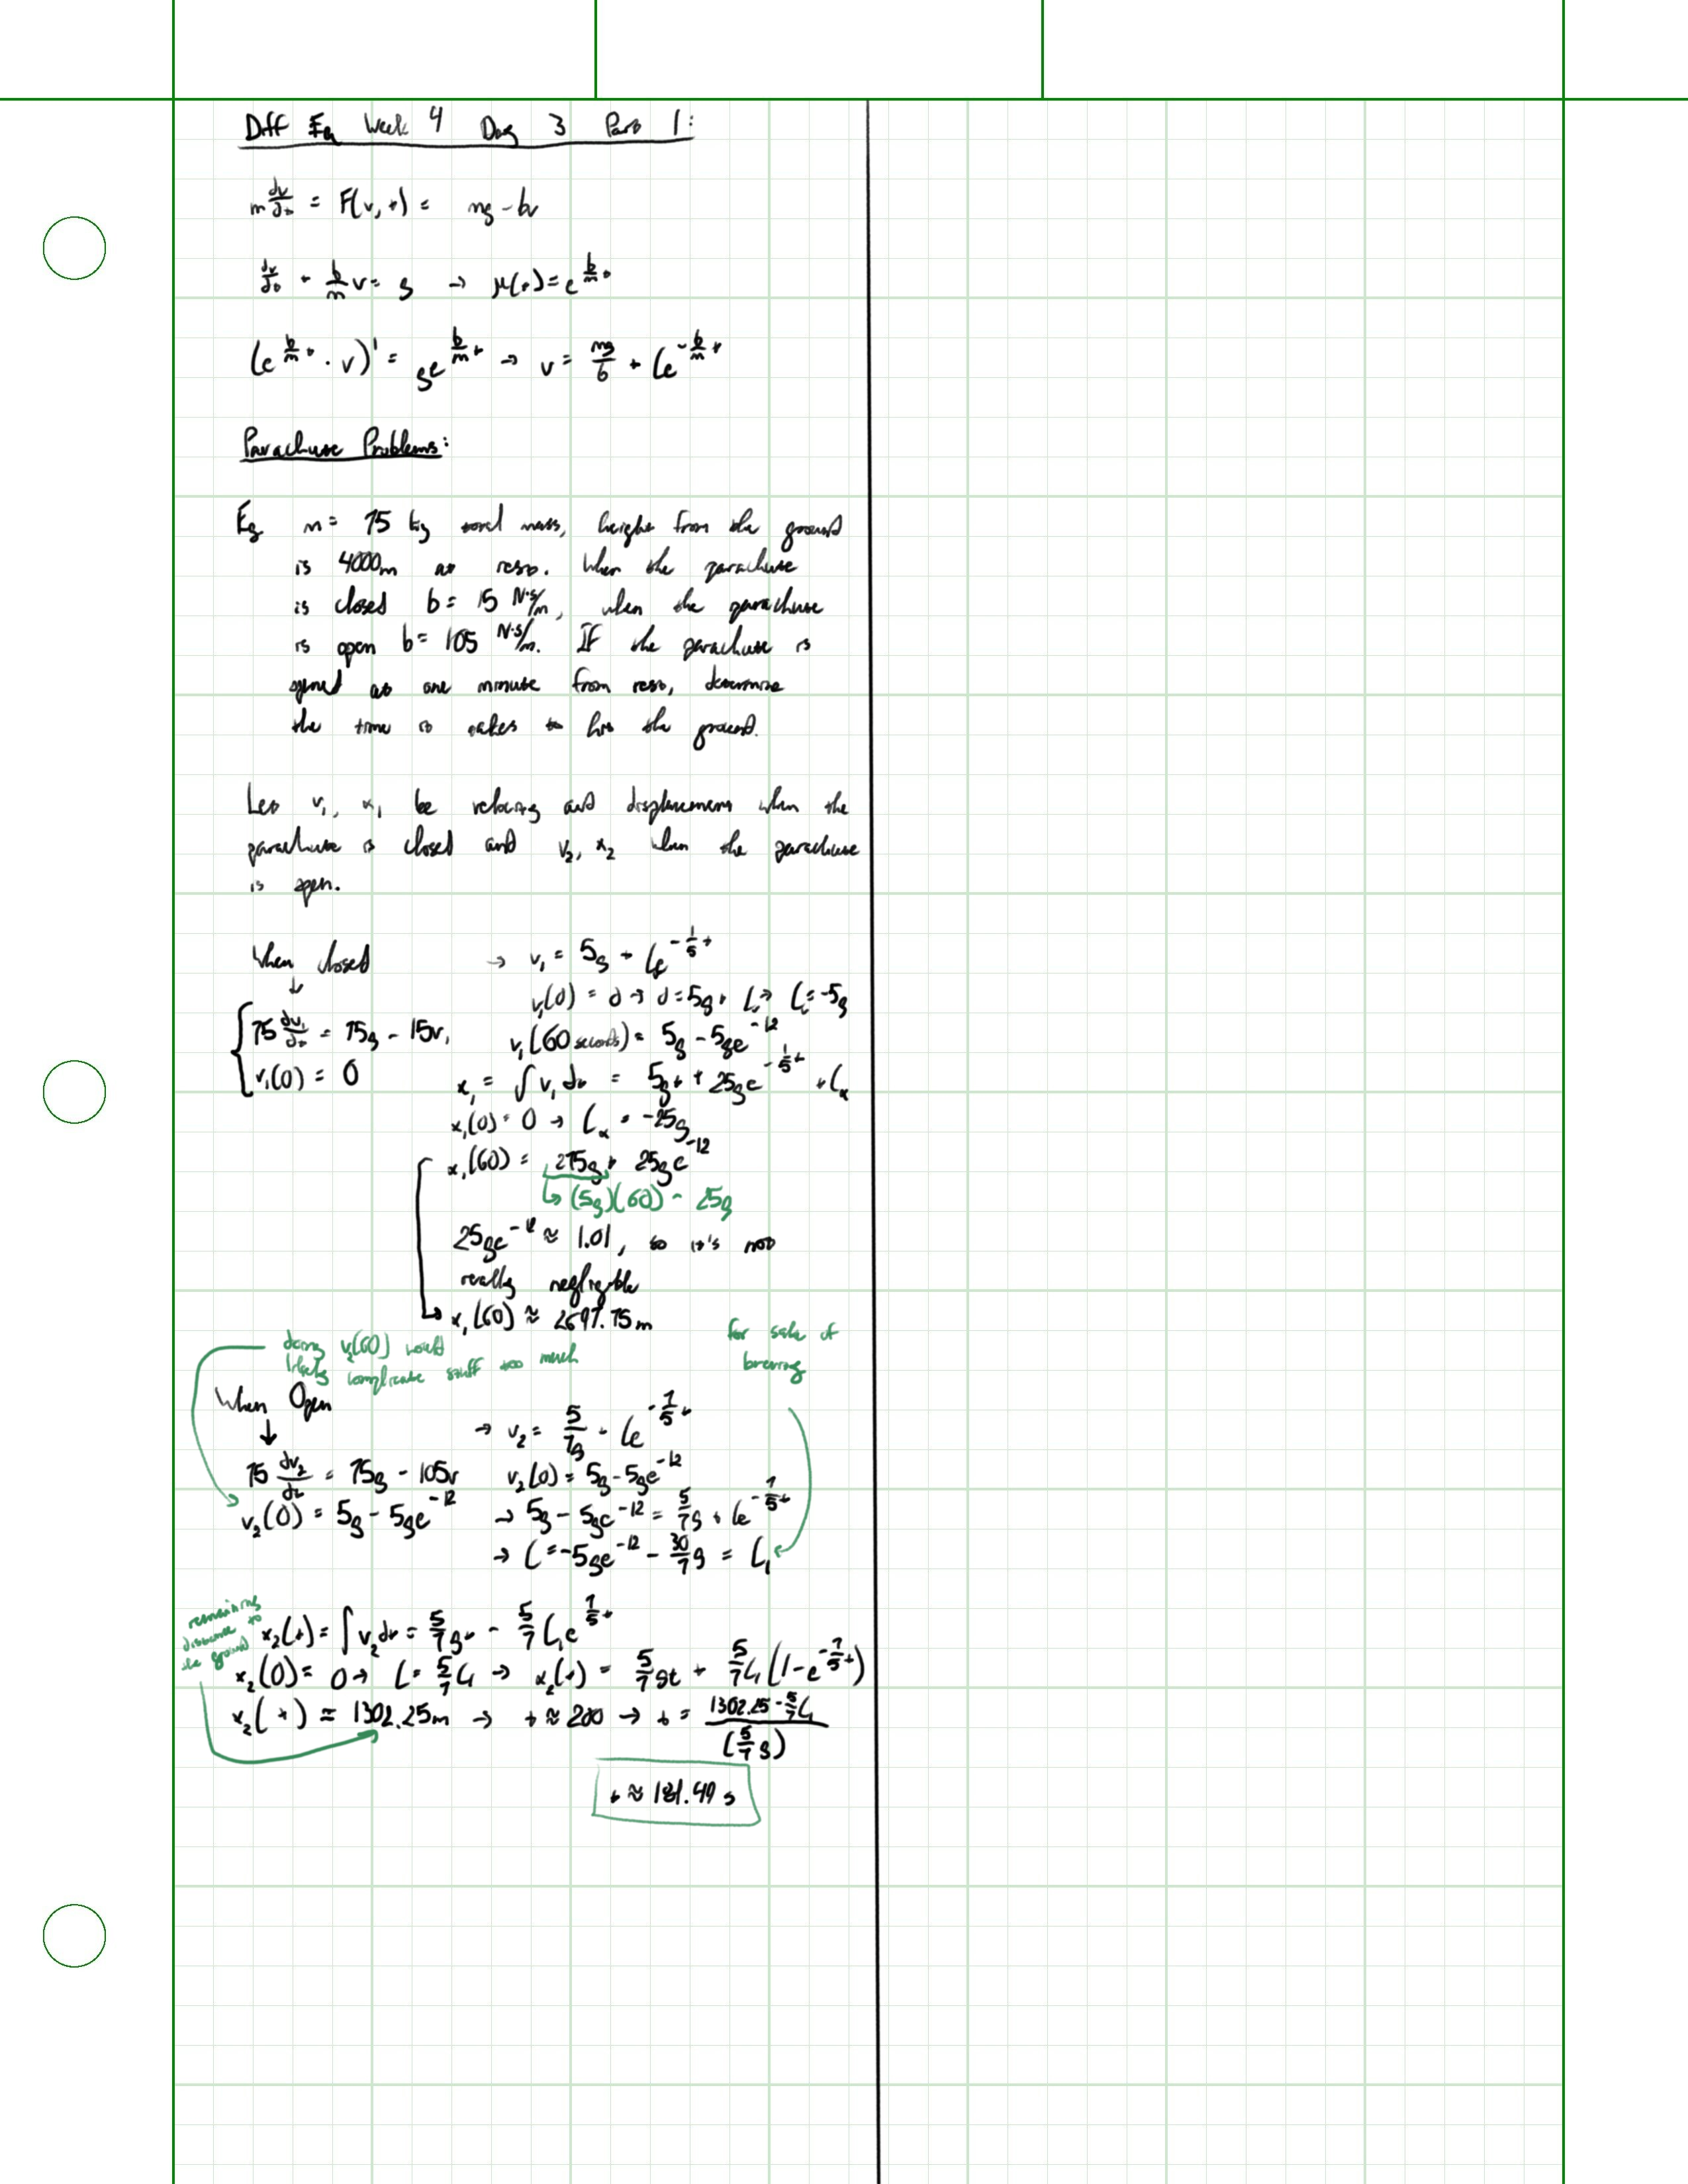 Diff Eq Week 4 Day 3 Part 1:
m dv/dt = F(v, t) = mg - bv
dv/dt + b/m v = g → μ(t) = e^(b/m t)
(e^(b/m t) · v)' = ge^(b/m t) → v = mg/b + Ce^(-b/m t)
Parachute Problems:
Eg m = 75 kg total mass, height from the ground
is 4000m at rest. When the parachute
is closed b = 15 N·s/m, when the parachute
is open b = 105 N·s/m. If the parachute is
opened at one minute from rest, determine
the time it takes to hit the ground.
Let v₁, x₁ be velocity and displacement when the
parachute is closed and v₂, x₂ when the parachute
is open.
When closed → v₁ = 5g + Ce^(-1/5 t)
↓
v₁(0) = 0 → 0 = 5g + C → C = -5g
75 dv₁/dt = 75g - 15v₁
v₁(60 seconds) = 5g - 5ge^(-12)
v₁(0) = 0
x₁ = ∫ v₁ dt = 5gt + 25ge^(-1/5 t) + Cₓ
x₁(0) = 0 → Cₓ = -25g
x₁(60) = 275g + 25ge^(-12)
↳ (5g)(60) - 25g
25ge^(-12) ≈ 1.01, so it's not
really negligible
x₁(60) ≈ 2697.75m
doing v₂(60) would
likely complicate stuff too much
for sake of
brevity
When Open
↓
→ v₂ = 5/7g + Ce^(-7/5 t)
75 dv₂/dt = 75g - 105v
v₂(0) = 5g - 5ge^(-12)
v₂(0) = 5g - 5ge^(-12)
→ 5g - 5ge^(-12) = 5/7 g + Ce^(-7/5 t)
→ C = -5ge^(-12) - 30/7 g = C₁
remaining
distance to
the ground
x₂(t) = ∫ v₂ dt = 5/7 gt - 5/7 C₁e^(7/5 t)
x₂(0) = 0 → C = 5/7 C₁ → x₂(t) = 5/7 gt + 5/7 C₁(1 - e^(-7/5 t))
x₂(t) ≈ 1302.25m → t ≈ 200 → t = (1302.25 - 5/7 C₁)/(5/7 g)
t ≈ 181.49 s